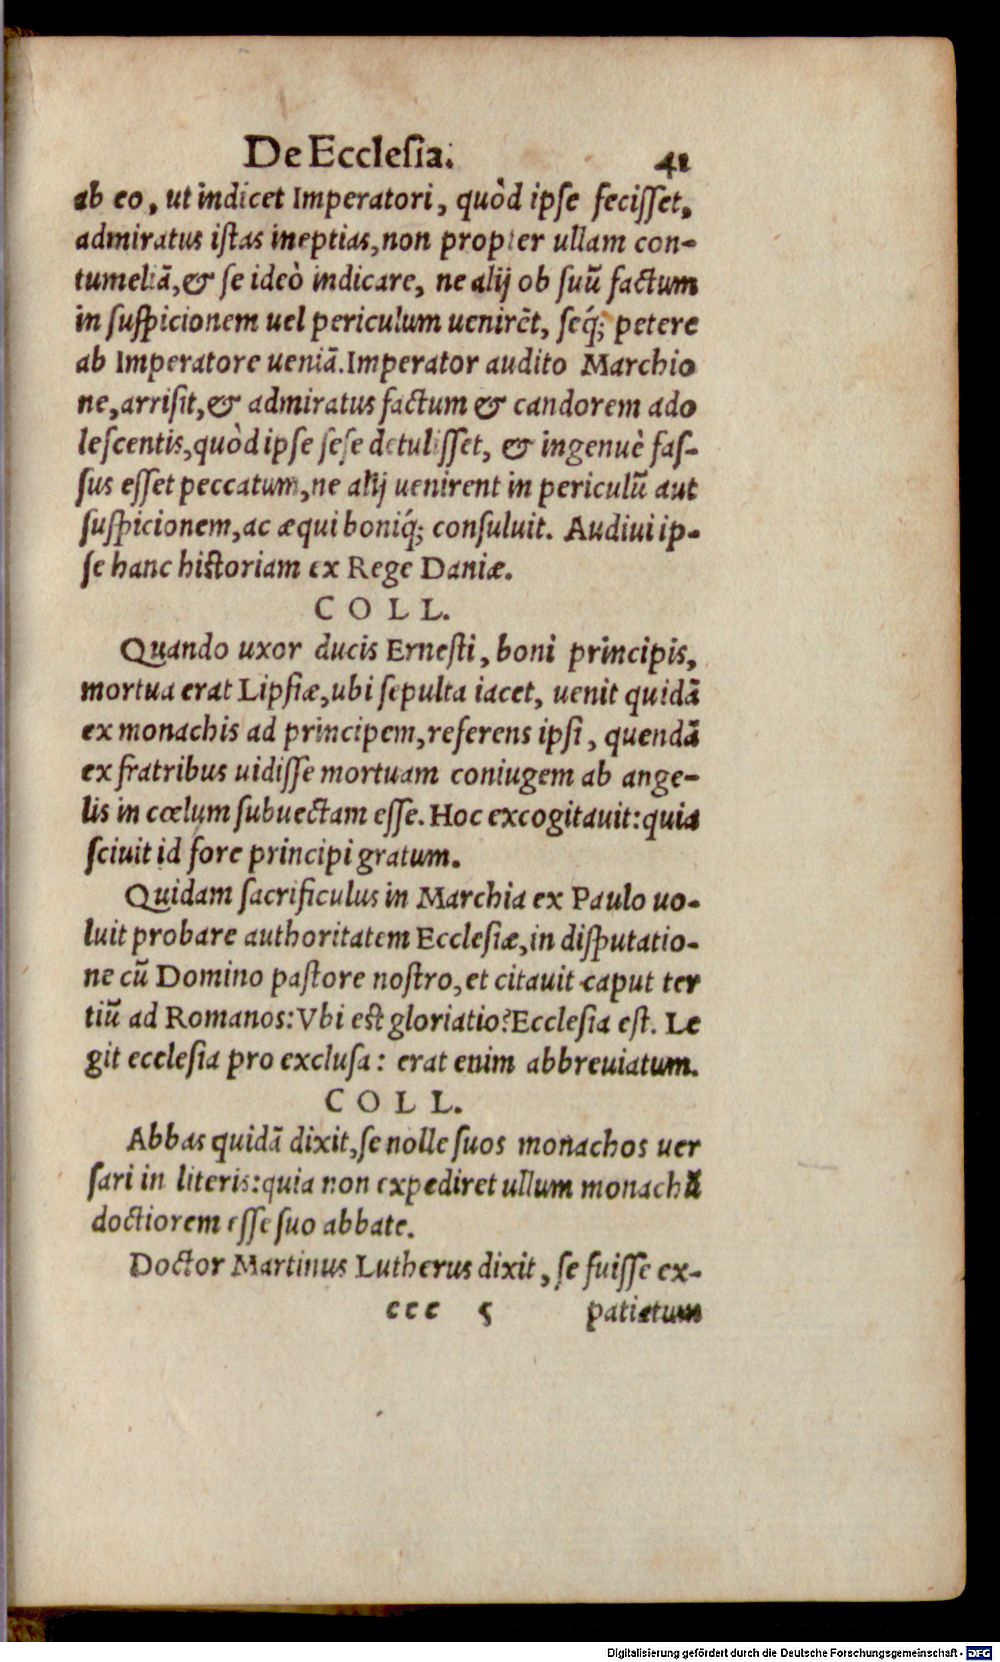 De Ecclesia. 41
ab eo, ut indicet Imperatori, quòd ipse fecisset,
admiratus istas ineptias, non propter ullam con-
tumeliã, & se ideò indicare, ne alij ob suũ factum
in suspicionem uel periculum uenirẽt, seq́; petere
ab Imperatore ueniã. Imperator audito Marchio
ne, arrisit, & admiratus factum & candorem ado
lescentis, quòd ipse sese detulisset, & ingenuè fas-
sus esset peccatum, ne alij uenirent in periculũ aut
suspicionem, ac æqui boniq́; consuluit. Audiui ip-
se hanc historiam ex Rege Daniæ.
COLL.
Quando uxor ducis Ernesti, boni principis,
mortua erat Lipsiæ, ubi sepulta iacet, uenit quidã
ex monachis ad principem, referens ipsi, quendã
ex fratribus uidisse mortuam coniugem ab ange-
lis in cœlum subuectam esse. Hoc excogitauit: quia
sciuit id fore principi gratum.
Quidam sacrificulus in Marchia ex Paulo uo-
luit probare authoritatem Ecclesiæ, in disputatio-
ne cũ Domino pastore nostro, et citauit caput ter
tiũ ad Romanos: Vbi est gloriatio? Ecclesia est. Le
git ecclesia pro exclusa: erat enim abbreuiatum.
COLL.
Abbas quidã dixit, se nolle suos monachos uer
sari in literis: quia non expediret ullum monachũ
doctiorem esse suo abbate.
Doctor Martinus Lutherus dixit, se fuisse ex-
ccc 5 patiatum
Digitalisierung gefördert durch die Deutsche Forschungsgemeinschaft - DFG